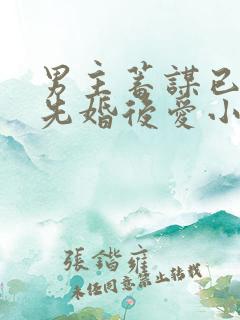 男主蓄謀已
先婚後愛小
張鍇雍
未经同意禁止转载